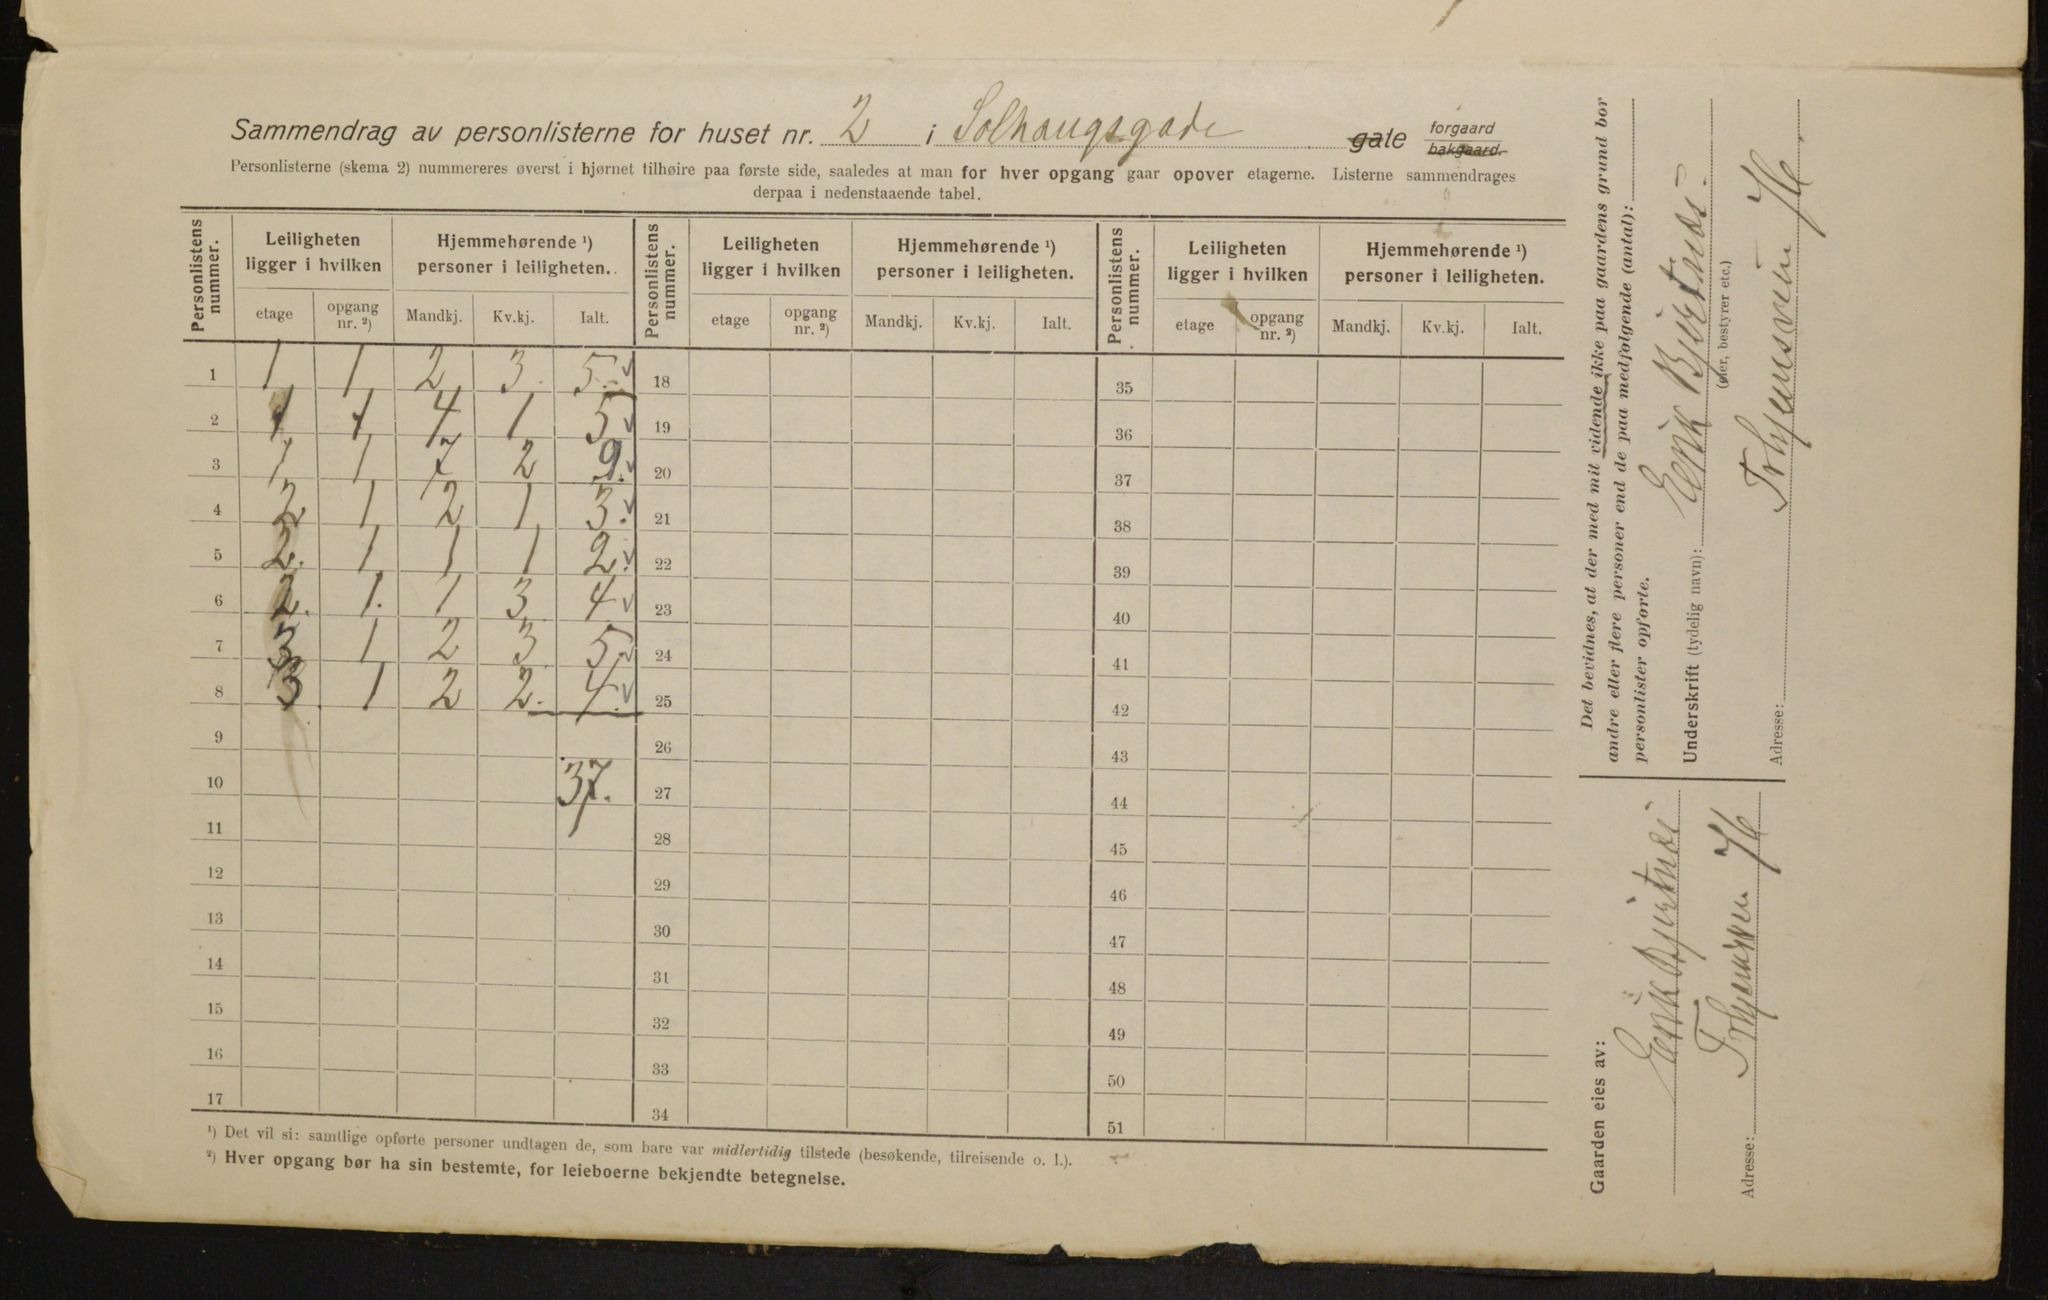 Sammendrag av personlisterne for huset nr. 2 i Solhaugsgade gate forgaard bakgaard.
Personlisterne (skema 2) nummereres øverst i hjørnet tilhøire paa første side, saaledes at man for hver opgang gaar opover etagerne. Listerne sammendrages
derpaa i nedenstaaende tabel.
Personlistens nummer. Leiligheten ligger i hvilken Hjemmehørende ¹) personer i leiligheten. Personlistens nummer. Leiligheten ligger i hvilken Hjemmehørende ¹) personer i leiligheten. Personlistens nummer. Leiligheten ligger i hvilken Hjemmehørende ¹) personer i leiligheten.
etage opgang nr. ²) Mandkj. Kv.kj. Ialt. etage opgang nr. ²) Mandkj. Kv.kj. Ialt. etage opgang nr. ²) Mandkj. Kv.kj. Ialt.
1 1 1 2 3 5 18 35
2 1 1 4 1 5 19 36
3 1 1 7 2 9 20 37
4 2 1 2 1 3 21 38
5 2 1 1 1 2 22 39
6 2 1 1 3 4 23 40
7 3 1 2 3 5 24 41
8 3 1 2 2 4 25 42
9 26 43
10 37. 27 44
11 28 45
12 29 46
13 30 47
14 31 48
15 32 49
16 33 50
17 34 51
¹) Det vil si: samtlige opførte personer undtagen de, som bare var midlertidig tilstede (besøkende, tilreisende o. l.).
²) Hver opgang bør ha sin bestemte, for leieboerne bekjendte betegnelse.
Det bevidnes, at der med mit vidende ikke paa gaardens grund bor
andre eller flere personer end de paa medfølgende (antal):
personlister opførte.
Underskrift (tydelig navn): Eerik Bjertnæs
(eier, bestyrer etc.)
Adresse:
Gaarden eies av: Eerik Bjertnæs
Adresse: